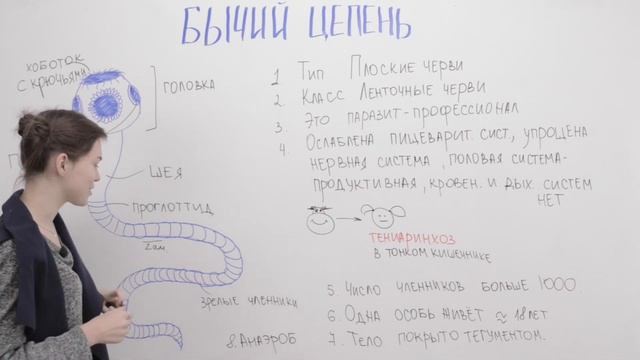 БЫЧИЙ ЦЕПЕНЬ
ХОБОТОК
С КРЮЧЬЯМИ
ГОЛОВКА
ШЕЯ
ПРОГЛОТТИД
2 см
ЗРЕЛЫЕ ЧЛЕНИКИ
1 Тип Плоские черви
2. Класс Ленточные черви
3. Это паразит-профессионал
4. Ослаблена пищеварит. сист, упрощена
нервная система, половая система-
продуктивная, кровен. и дых. систем
нет
ТЕНИАРИНХОЗ
В ТОНКОМ КИШЕЧНИКЕ
5. Число члеников больше 1000.
6. Одна особь живёт ≈ 18 лет
7. Тело покрыто тегументом.
8. АНАЭРОБ